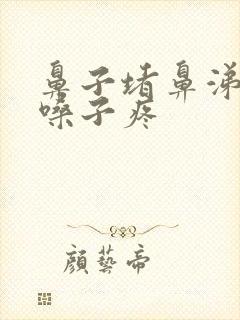 鼻子堵鼻涕
嗓子疼
顏藝帝